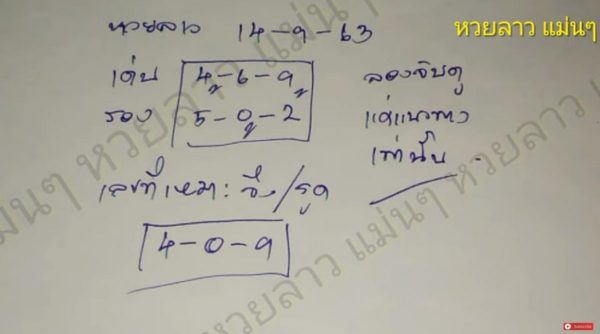 หวยลาว แม่นๆ
หวยลาว 14-9-63
เด่น 4-6-9
รอง 5-0-2
ลองจับดู
แค่แนวทาง
เท่านั้น
เลขที่เหมา: วิ่ง/รูด
4-0-9
หวยลาว แม่นๆ หวยลาว แม่นๆ
SUBSCRIBE